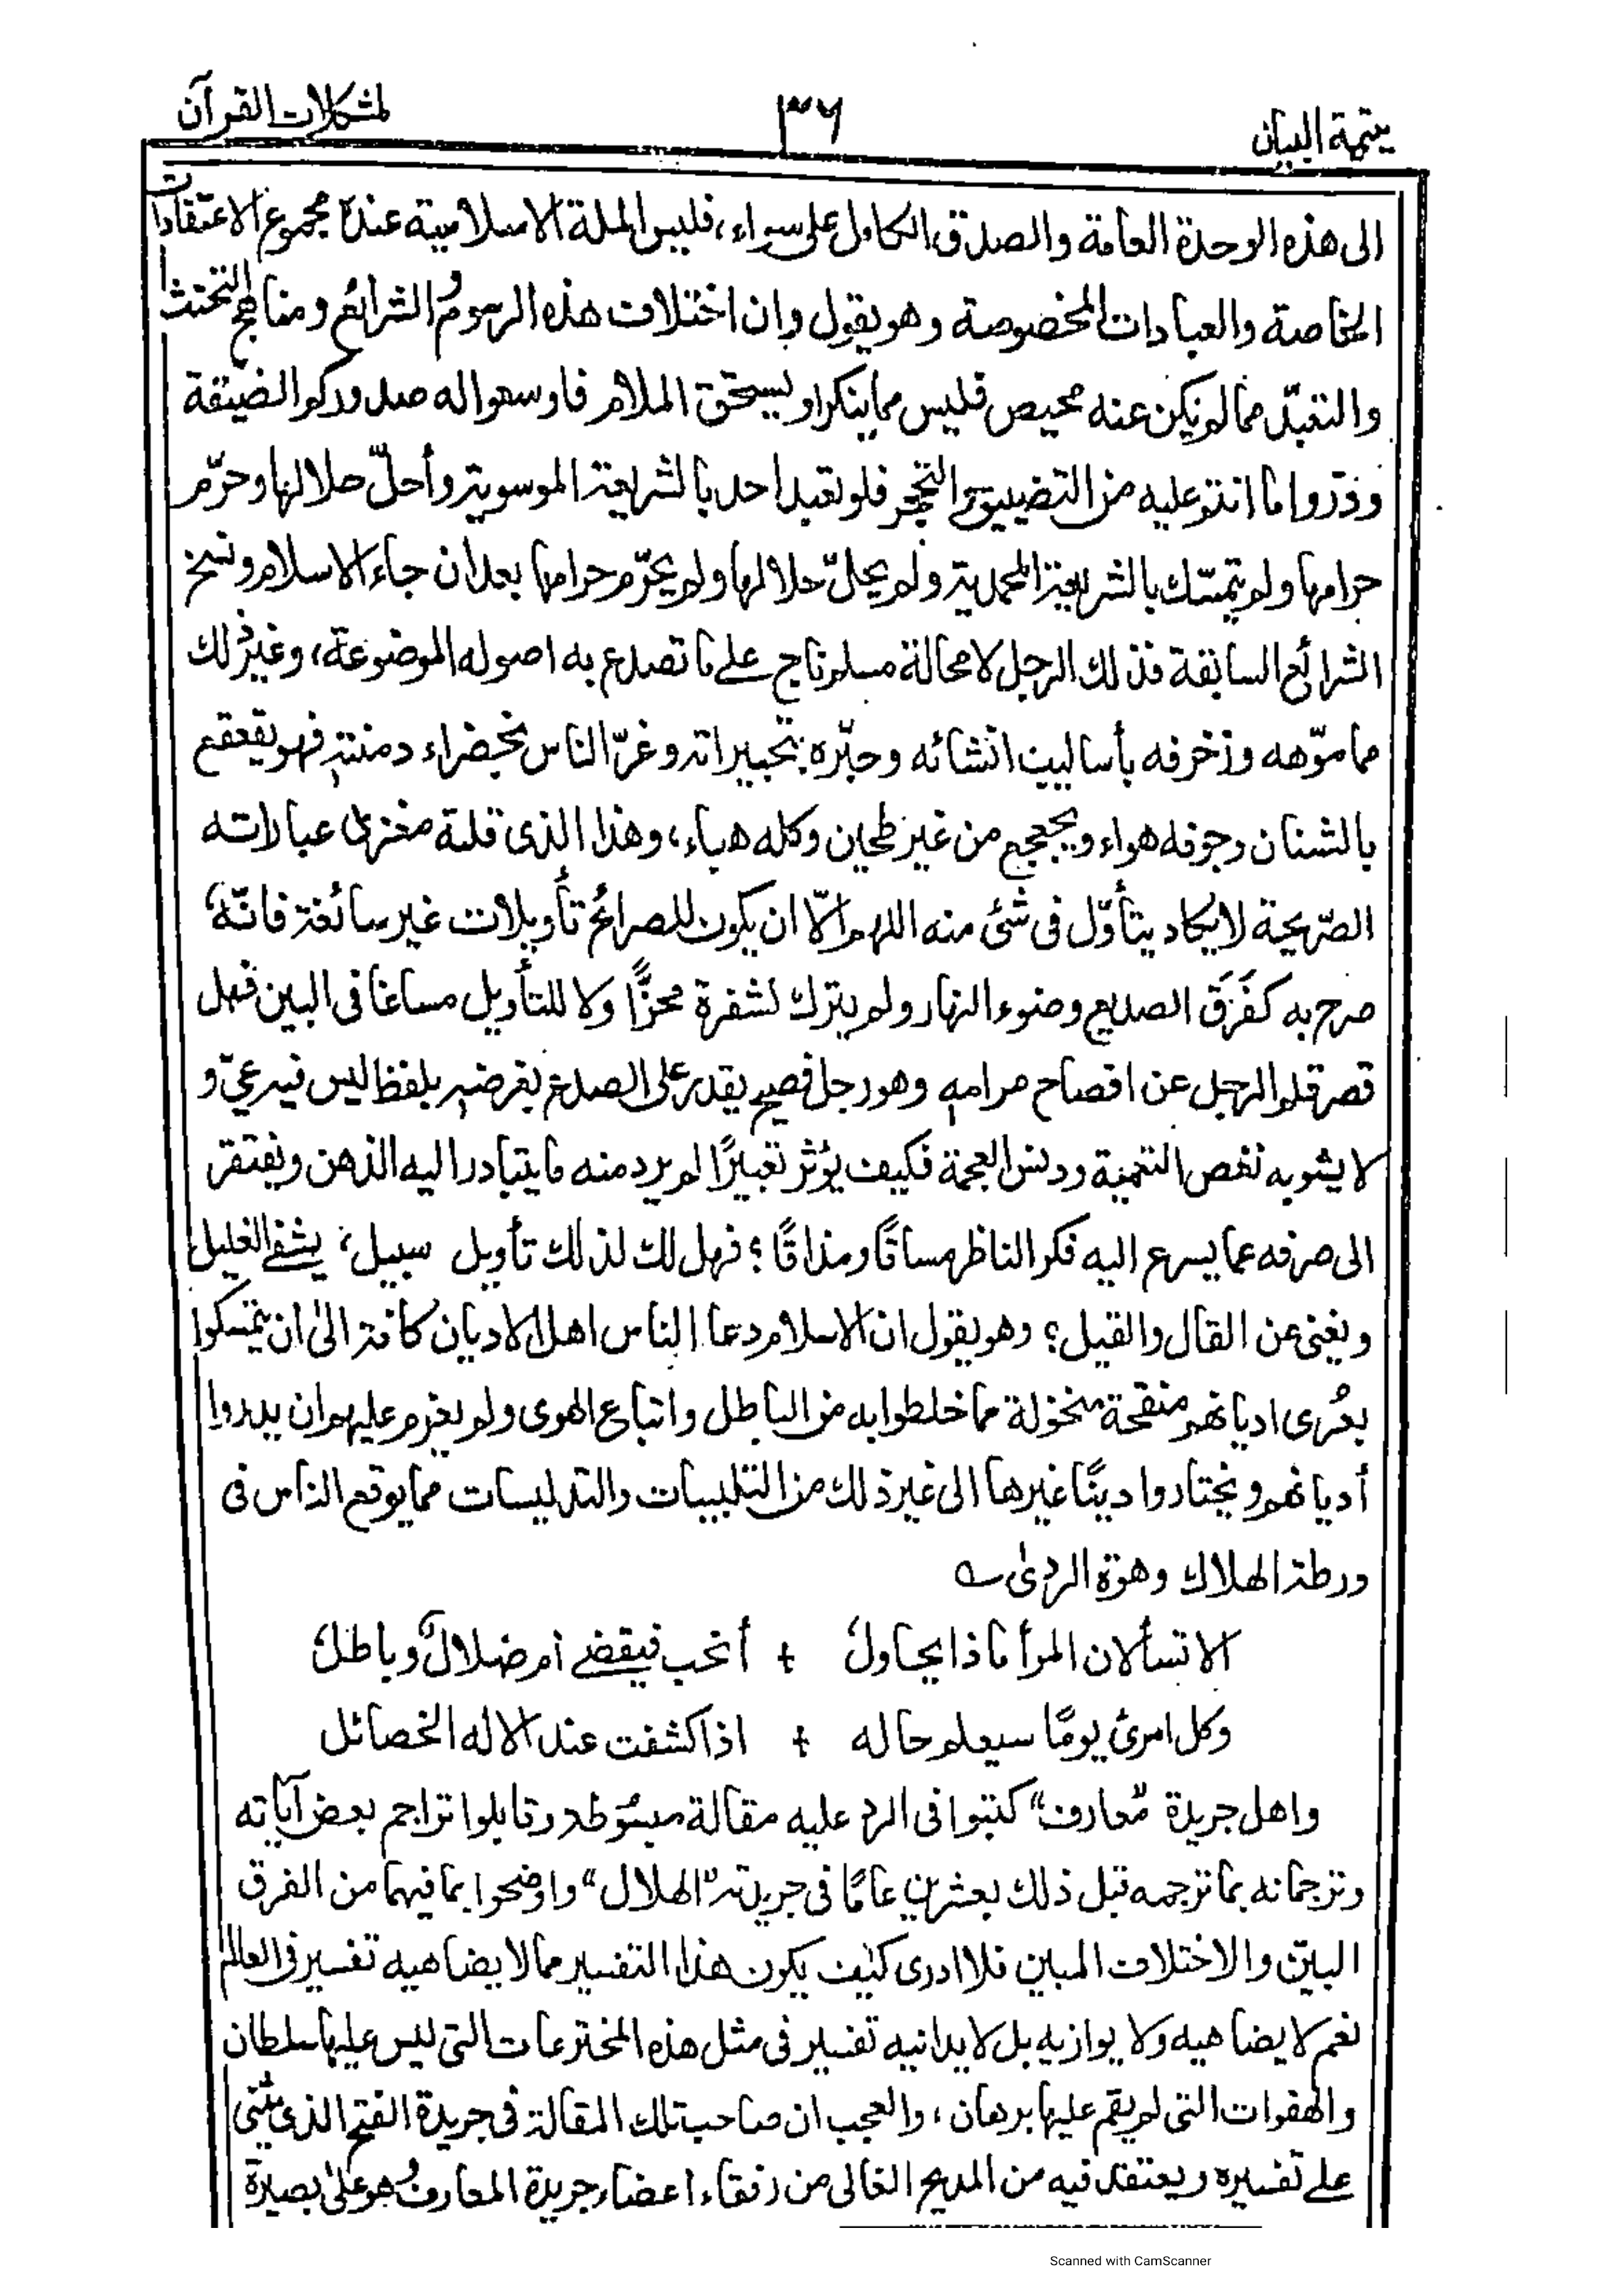 يتيمة البيان ٣٦ لمشكلات القرآن
الى هذه الوحدة العامة والصدق الكامل على سواء، فليس الملة الاسلامية عندهٗ مجموع الاعتقادات
الخاصة والعبادات المخصوصة وهو يقول وان اختلاف هذه الرسوم والشرائع ومناهج التحنث
والتعبّد مما لم يكن عنه محيص فليس مما ينكر او يستحق الملام فاوسعوا له صدوركم الضيّقة
وذروا ما انتم عليه من التضييق والتحجر فلو تعبد احد بالشريعة الموسوية وأحلّ حلالها وحرّم
حرامها ولم يتمسّك بالشريعة المحمدية ولم يحلّ حلالها ولم يحرّم حرامها بعد ان جاء الاسلام ونسخ
الشرائع السابقة فذلك الرجل لا محالة مسلم ناج على ما تصدع به اصوله الموضوعة، وغير ذلك
مما موّهه وزخرفه بأساليب انشائه وحبّره بتحبيراته وغرّ الناس بخضراء دمنته فهو يقعقع
بالشنان وجوفه هواء ويجعجع من غير طحين وكله هباء، وهذا الذى قلته مغزى عباراته
الصّريحة لا يكاد يتأوّل فى شئ منه اللهم الّا ان يكون للصرائح تأويلات غير سائغة فانّهٗ
صرح به كفَرَق الصديع وضوء النهار ولم يترك لشفرة محزًّا ولا للتأويل مساغا فى البين فهل
قصر قلم الرجل عن افصاح مرامه وهو رجل فصيح يقدر على الصدع بغرضه بلفظ ليس فيه عيّ و
لا يشوبه نغص التعمية ودنس العجمة فكيف يؤثر تعبيرًا لم يرد منه ما يتبادر اليه الذهن ويفتقر
الى صرفه عما يسرع اليه فكر الناظر مساقًا ومذاقًا؟ فهل لك لذلك تأويل سبيل، يشفى الغليل
ويغنى عن القال والقيل؟ وهو يقول ان الاسلام دعا الناس اهل الاديان كافة الى ان يتمسكوا
بعُرى اديانهم منقحة منخولة مما خلطوا به من الباطل واتباع الهوى ولم يعزم عليهم ان يدروا
أديانهم ويختاروا دينًا غيرها الى غير ذلك من التلبيسات والتدليسات مما يوقع الناس فى
ورطة الهلاك وهوّة الردىٰ ؎
الا تسألان المرأ ماذا يحاولٗ ‡ أنحب فيقضى أم ضلالٌ وباطلٗ
وكل امرئ يومًا سيعلم حاله ‡ اذا كشفت عند الاله الخصائل
واهل جريدة "معارف" كتبوا فى الرد عليه مقالة مبسوطة وقابلوا تراجم بعض آياته
وترجمانه بما ترجمه قبل ذلك بعشرين عامًا فى جريدته "الهلال" واوضحوا بما فيهما من الفرق
البيّن والاختلاف المبين فلا ادرى كيف يكون هذا التفسير مما لا يضاهيه تفسير فى العالم
نعم لا يضاهيه ولا يوازيه بل لا يدانيه تفسير فى مثل هذه المخترعات التى ليس عليها سلطان
والهفوات التى لم يقم عليها برهان، والعجب ان صاحب تلك المقالة فى جريدة الفتح الذى يثنى
على تفسيره ويعتقد فيه من المديح الغالى من رفقاء اعضاء جريدة المعارف وهو على بصيرة
Scanned with CamScanner